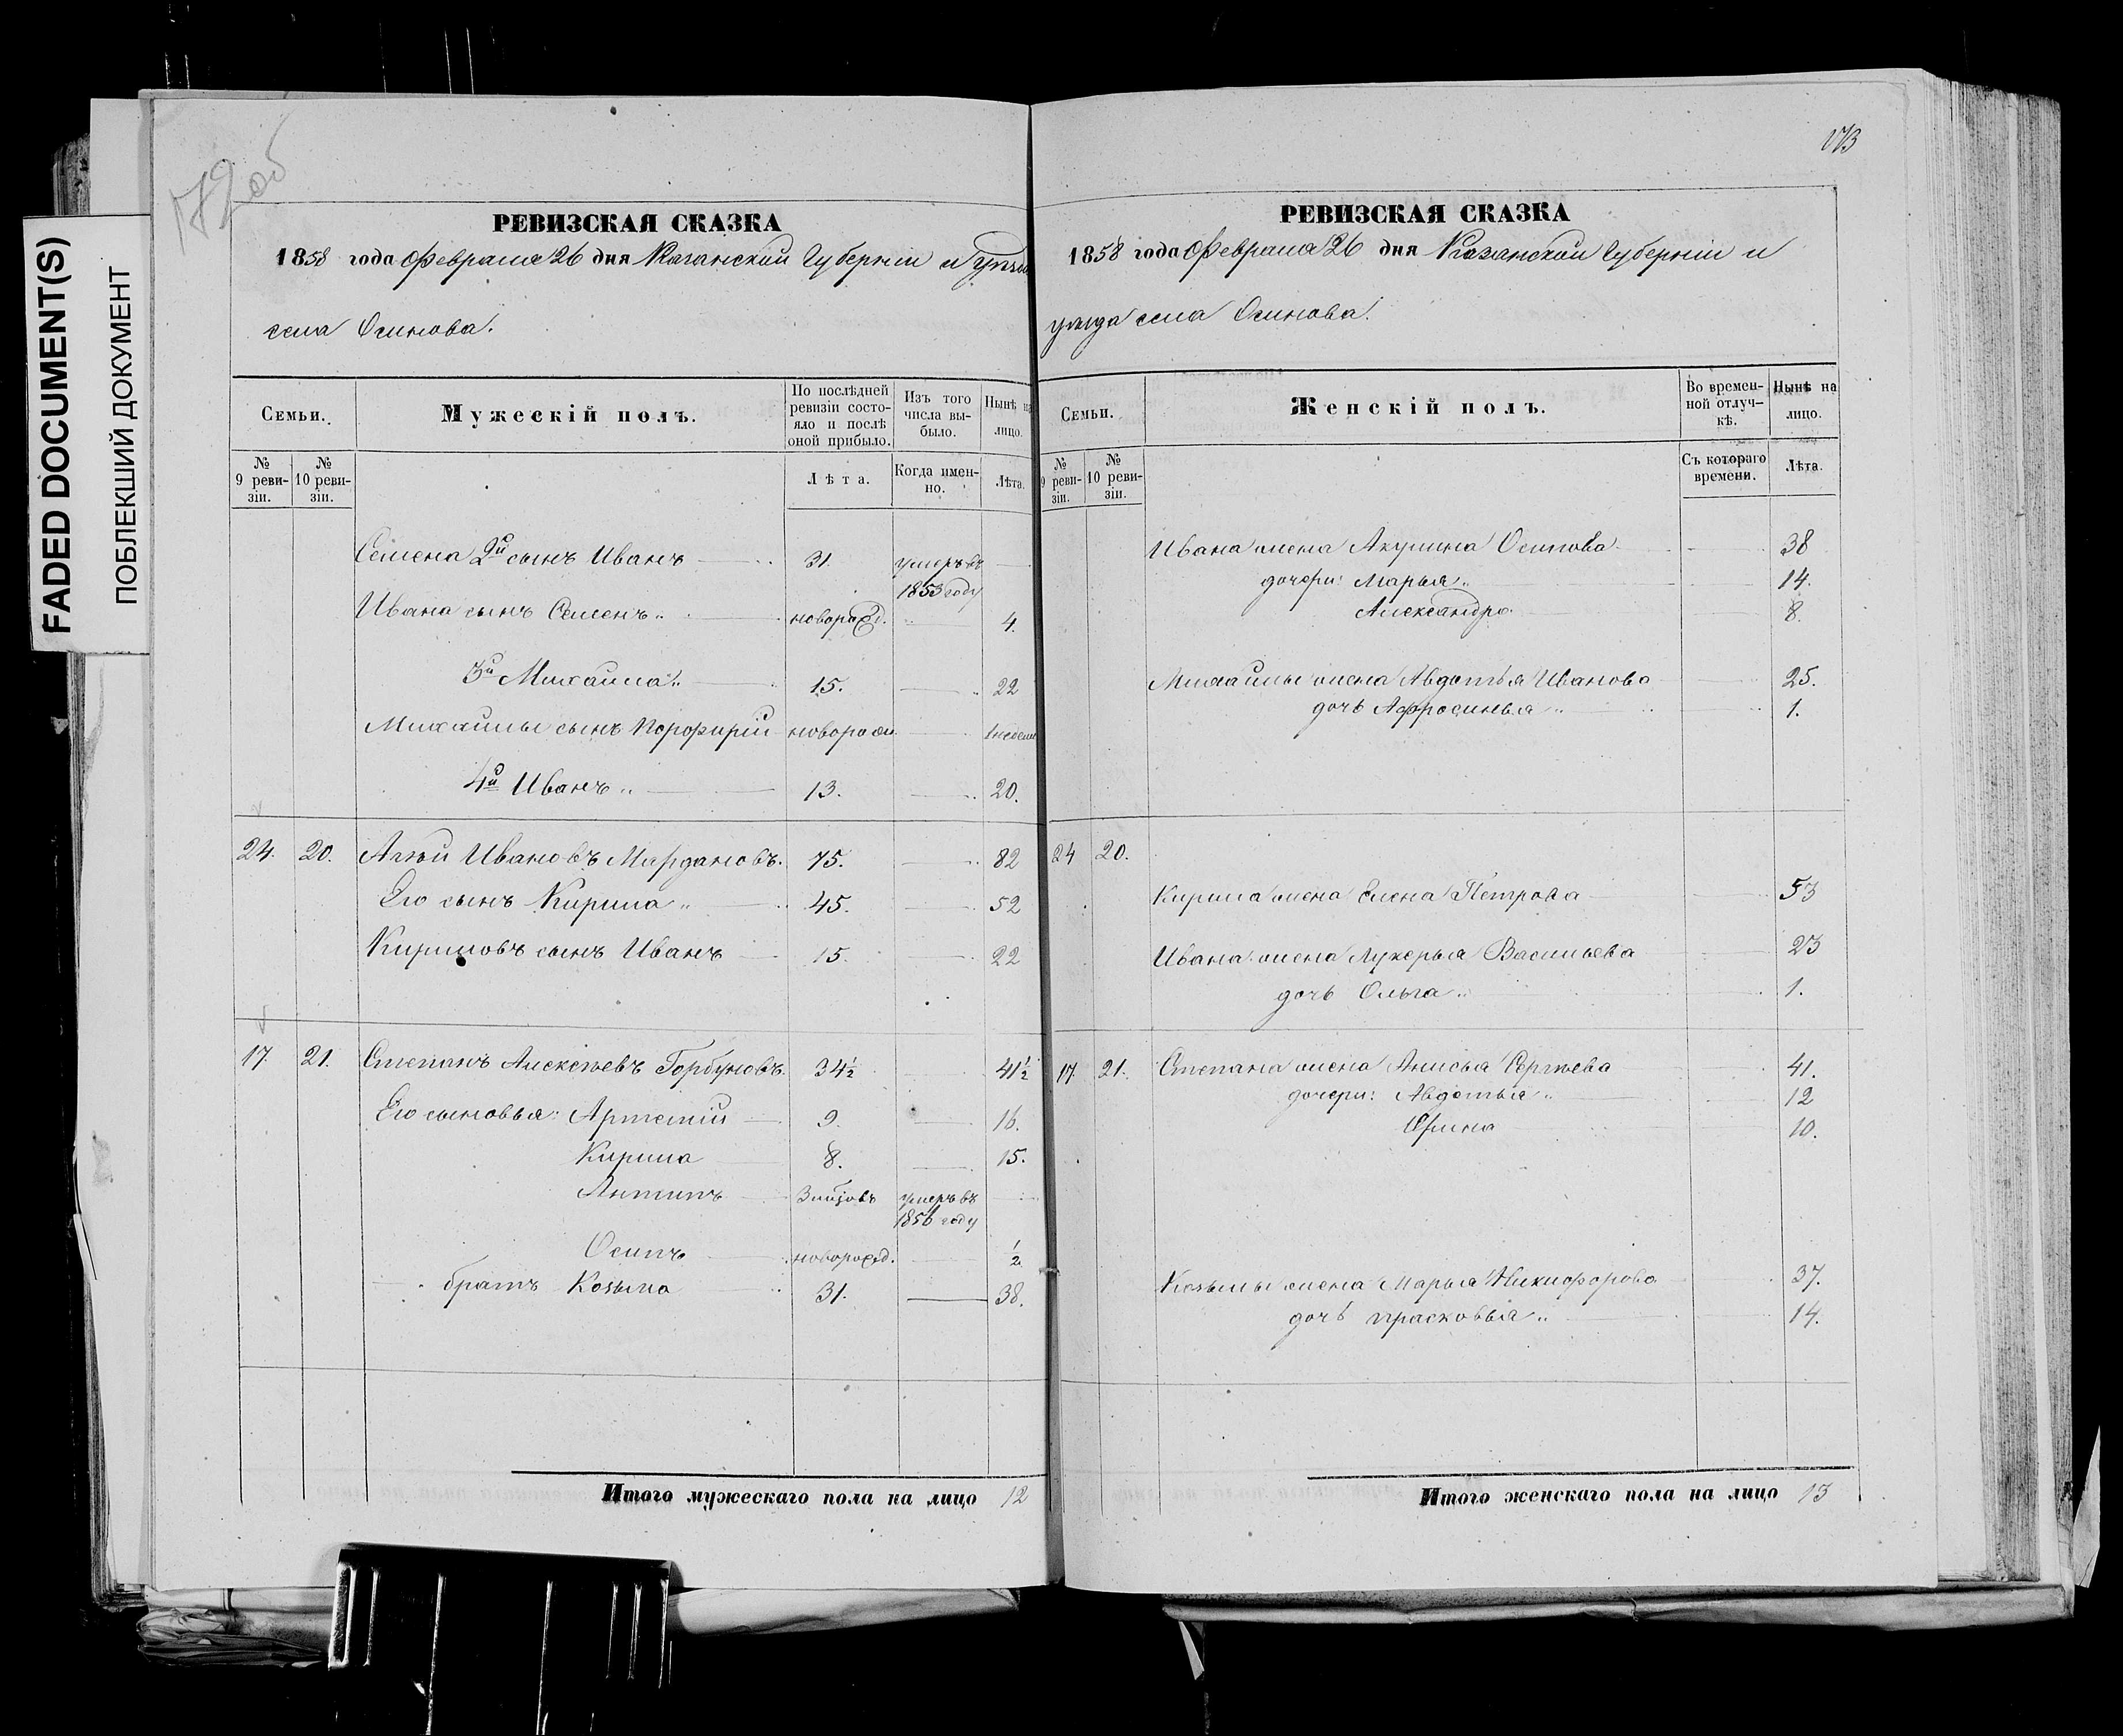 FADED DOCUMENT(S)
ПОБЛЕКШИЙ ДОКУМЕНТ
172об
РЕВИЗСКАЯ СКАЗКА
1858 года Февраля 26 дня Казанской Губерніи и уѣзда
села Осинова.
Семьи.
Мужескій полъ.
По послѣдней ревизіи состояло и послѣ оной прибыло.
Изъ того числа выбыло.
Нынѣ на лицо.
№ 9 ревизіи.
№ 10 ревизіи.
Лѣта.
Когда именно.
Лѣта.
Семена 2й сынъ Иванъ 31. умеръ въ 1853 году
Ивана сынъ Семенъ новорожд. 4.
3й Михайла 15. 22
Михайлы сынъ Порфирій новорожд. 1 недели
4й Иванъ 13. 20.
24. 20. Агѣй Ивановъ Мардановъ. 75. 82
Его сынъ Кирила 45. 52
Кириловъ сынъ Иванъ 15. 22
17. 21. Степанъ Алексѣевъ Горбуновъ. 34½ 41½
Его сыновья: Артемій 9. 16.
Кирила 8. 15.
Антипъ умеръ въ 1856 году
Осипъ новорожд. ½
братъ Козьма 31. 38.
Итого мужескаго пола на лицо 12
173
РЕВИЗСКАЯ СКАЗКА
1858 года Февраля 26 дня Казанской Губерніи и
уѣзда села Осинова.
Семьи.
Женскій полъ.
Во временной отлучкѣ.
Нынѣ на лицо.
№ 9 ревизіи.
№ 10 ревизіи.
Съ котораго времени.
Лѣта.
Ивана жена Акулина Осипова 38
дочери: Марья 14.
Александра 8.
Михайлы жена Авдотья Иванова 25.
дочь Афросинья 1.
24 20.
Кирила жена Елена Петрова 53
Ивана жена Лукерья Васильева 23
дочь Ольга 1.
17. 21. Степана жена Анисья Сергѣева 41.
дочери: Авдотья 12
Орина 10.
Козьмы жена Марья Никифорова 37.
дочь Прасковья 14.
Итого женскаго пола на лицо 13